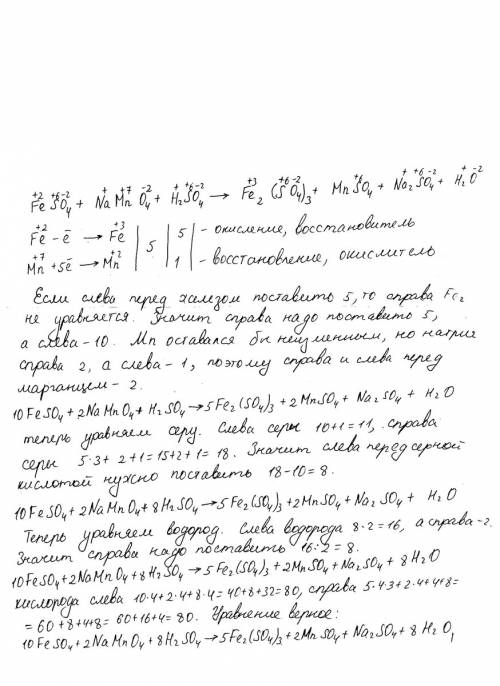 +2 +6 -2 + +7 -2 + +6 -2 +3 +6 -2 +6 + +6 -2 + -2
FeSO4 + NaMnO4 + H2SO4 → Fe2(SO4)3 + MnSO4 + Na2SO4 + H2O
Fe+2 - ē → Fe+3 | 5 | 5 | - окисление, восстановитель
Mn+7 + 5ē → Mn+2 | | 1 | - восстановление, окислитель
Если слева перед железом поставить 5, то справа Fe2
не уравняется. Значит справа надо поставить 5,
а слева - 10. Mn остался бы неизменным, но натрия
справа 2, а слева - 1, поэтому справа и слева перед
марганцем - 2.
10FeSO4 + 2NaMnO4 + H2SO4 → 5Fe2(SO4)3 + 2MnSO4 + Na2SO4 + H2O
теперь уравняем серу. Слева серы 10+1=11, справа
серы 5·3+2+1=15+2+1=18. Значит слева перед серной
кислотой нужно поставить 18-10=8.
10FeSO4 + 2NaMnO4 + 8H2SO4 → 5Fe2(SO4)3 + 2MnSO4 + Na2SO4 + H2O
Теперь уравняем водород. Слева водорода 8·2=16, а справа - 2.
Значит справа надо поставить 16:2=8.
10FeSO4 + 2NaMnO4 + 8H2SO4 → 5Fe2(SO4)3 + 2MnSO4 + Na2SO4 + 8H2O
кислорода слева 10·4+2·4+8·4=40+8+32=80, справа 5·4·3+2·4+4+8=
=60+8+4+8=60+16+4=80. Уравнение верное:
10FeSO4 + 2NaMnO4 + 8H2SO4 → 5Fe2(SO4)3 + 2MnSO4 + Na2SO4 + 8H2O,